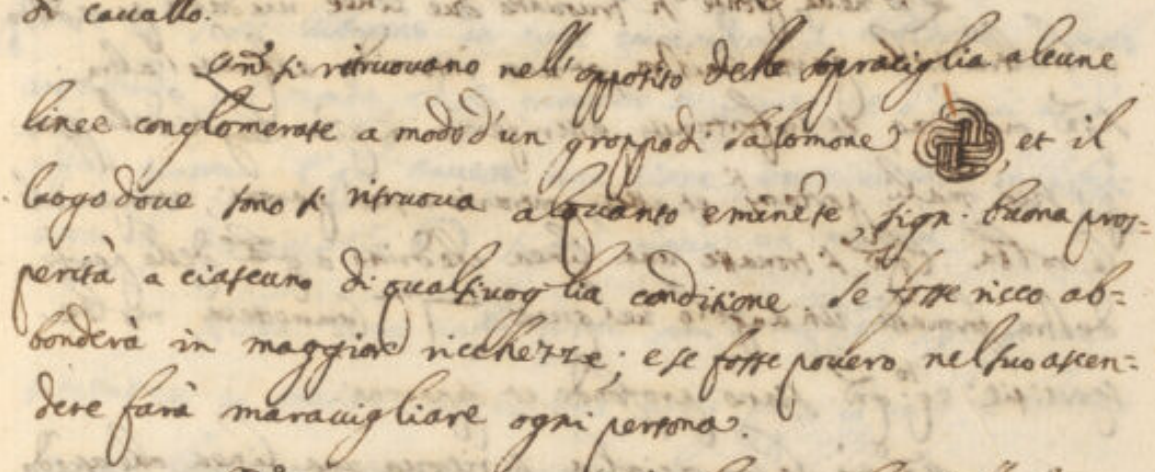 di cavallo.
si ritruovano nell'opposito delle sopraciglia alcune
linee conglomerate a modo d'un groppo di Salomone, et il
luogo dove sono si ritruova alquanto eminẽte, sign. buona pros-
perità a ciascuno di qualsivoglia conditione. Se fosse ricco ab=
bonderà in maggior ricchezze; e se fosse povero nel suo ascen=
dere farà maravigliare ogni persona.